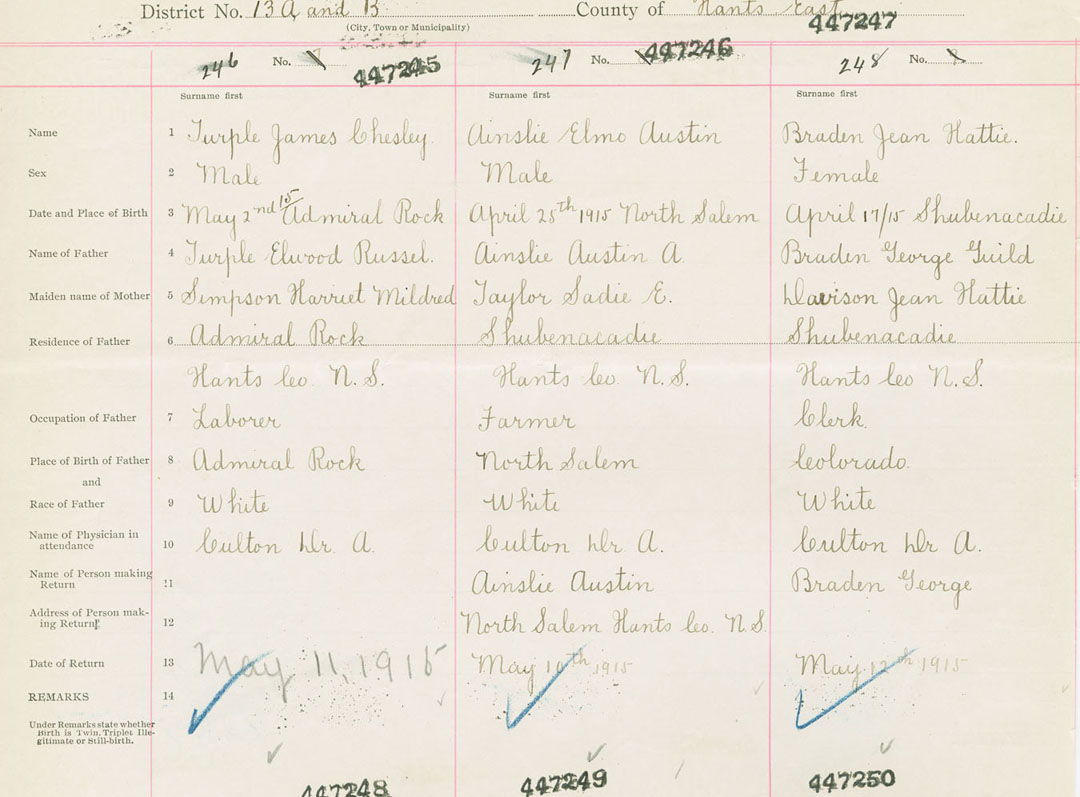 District No. 13A and B County of Hants East
(City, Town or Municipality)
447247
246 No. 447245 247 No. 447246 248 No.
Surname first Surname first Surname first
Name 1 Turple James Chesley. Ainslie Elmo Austin Braden Jean Hattie.
Sex 2 Male Male Female
Date and Place of Birth 3 May 2nd 15 Admiral Rock April 25th 1915 North Salem April 17/15 Shubenacadie
Name of Father 4 Turple Elwood Russel. Ainslie Austin A. Braden George Guild
Maiden name of Mother 5 Simpson Harriet Mildred Taylor Sadie E. Davison Jean Hattie
Residence of Father 6 Admiral Rock Shubenacadie Shubenacadie
Hants Co. N.S. Hants Co. N.S. Hants Co N.S.
Occupation of Father 7 Laborer Farmer Clerk.
Place of Birth of Father 8 Admiral Rock North Salem Colorado.
and
Race of Father 9 White White White
Name of Physician in
attendance 10 Culton Dr. A. Culton Dr. A. Culton Dr A.
Name of Person making
Return 11 Ainslie Austin Braden George
Address of Person mak-
ing Return 12 North Salem Hants Co. N.S.
Date of Return 13 May 11, 1915 May 10th 1915 May 12th 1915
REMARKS 14
Under Remarks state whether
Birth is Twin, Triplet Ille-
gitimate or Still-birth.
447248 447249 447250